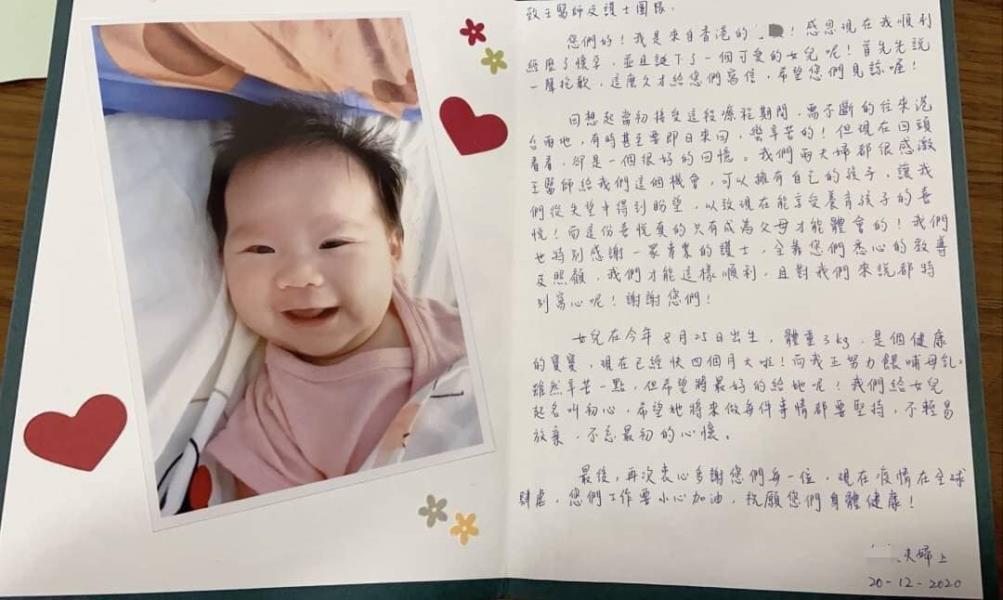 致王醫師及護士團隊，
您們好！我是來自香港的 ！感恩現在我順利
經歷了懷孕，並且誕下了一個可愛的女兒呢！首先先說
一聲抱歉，這麼久才給您們寫信，希望您們見諒喔！
回想起當初接受這段療程期間，需不斷的往來港
台兩地，有時甚至要即日來回，蠻辛苦的！但現在回頭
看看，卻是一個很好的回憶。我們兩夫婦都很感激
王醫師給我們這個機會，可以擁有自己的孩子，讓我
們從失望中得到盼望，以致現在能享受養育孩子的喜
悅！而這份喜悅真的只有成為父母才能體會的！我們
也特別感謝一眾專業的護士，全靠您們悉心的教導
及照顧，我們才能這樣順利，且對我們來說都特
別窩心呢！謝謝您們！
女兒在今年8月25日出生，體重3kg，是個健康
的寶寶，現在已經快四個月大啦！而我正努力餵哺母乳，
雖然辛苦一點，但希望將最好的給她呢！我們給女兒
起名叫初心，希望她將來做每件事情都要堅持，不輕易
放棄，不忘最初的心懷。
最後，再次衷心多謝您們每一位，現在疫情在全球
肆虐，您們工作要小心加油，祝願您們身體健康！
夫婦上
20-12-2020